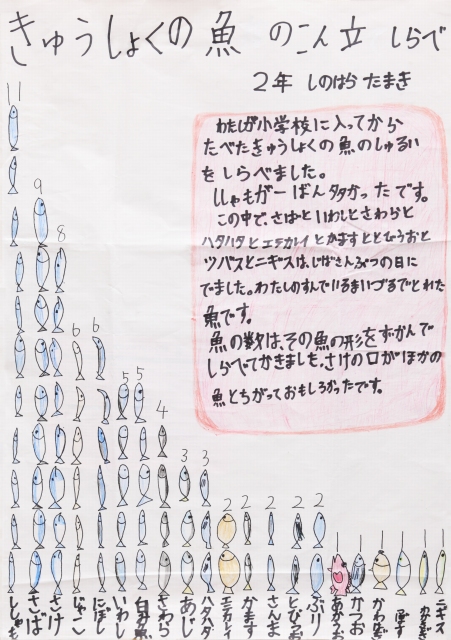 きゅうしょくの魚のこん立しらべ
2年 しのはら たまき
わたしが小学校に入ってから
たべたきゅうしょくの魚のしゅるい
をしらべました。
ししゃもが一ばん多かったです。
この中で、さばといわしとさわらと
ハタハタとエテカレイとかますととびうおと
ツバスとニギスは、じばさんぶつの日に
でました。わたしのすんでいるまいづるでとれた
魚です。
魚の数は、その魚の形をずかんで
しらべてかきました。さけの口がほかの
魚とちがっておもしろかったです。
11
9
8
6
6
5
5
4
3
3
2
2
2
2
2
ししゃも
さば
さけ
じゃこ
にぼし
いわし
白身魚
さわら
あじ
ハタハタ
エテカレイ
かます
さんま
とびうお
ぶり
あかうお
かつお
ニギス